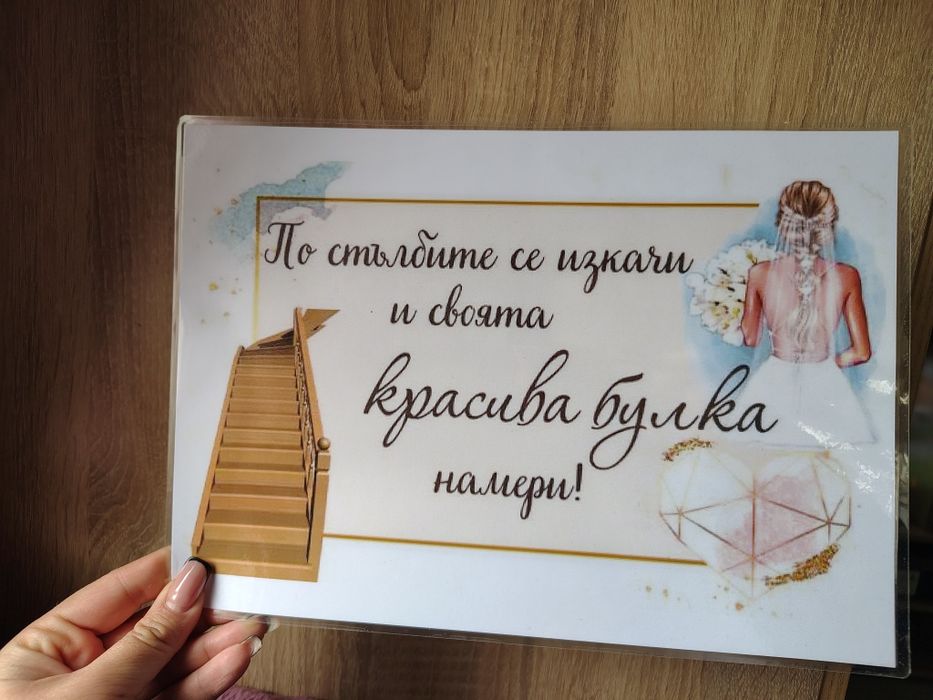 По стълбите се изкачи
и своята
красива булка
намери!